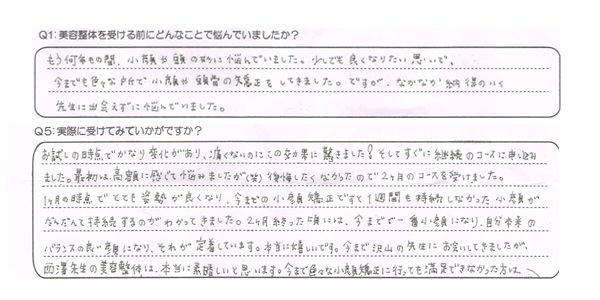 Q1: 美容整体を受ける前にどんなことで悩んでいましたか?
もう何年もの間、小顔や頭の形に悩んでいました。少しでも良くなりたい思いで、
今までも色々な所で小顔や頭蓋の矯正をしてきました。ですが、なかなか納得のいく
先生に出会えずに悩んでいました。
Q5: 実際に受けてみていかがですか?
お試しの時点でかなり変化があり、痛くないのにこの効果に驚きました!そしてすぐに継続のコースに申し込み
ました。最初は高額に感じて悩みましたが(笑)後悔したくなかったので2ヶ月のコースを受けました。
1ヶ月の時点でとても姿勢が良くなり、今までの小顔矯正ですと1週間も持続しなかった小顔が
だんだんと持続するのがわかってきました。2ヶ月終った頃には、今までで一番小顔になり、自分本来の
バランスの良い顔になり、それが定着しています。本当に嬉しいです。今まで沢山の先生にお会いしてきましたが、
西澤先生の美容整体は、本当に素晴しいと思います。今まで色々な小顔矯正に行っても満足できなかった方は、